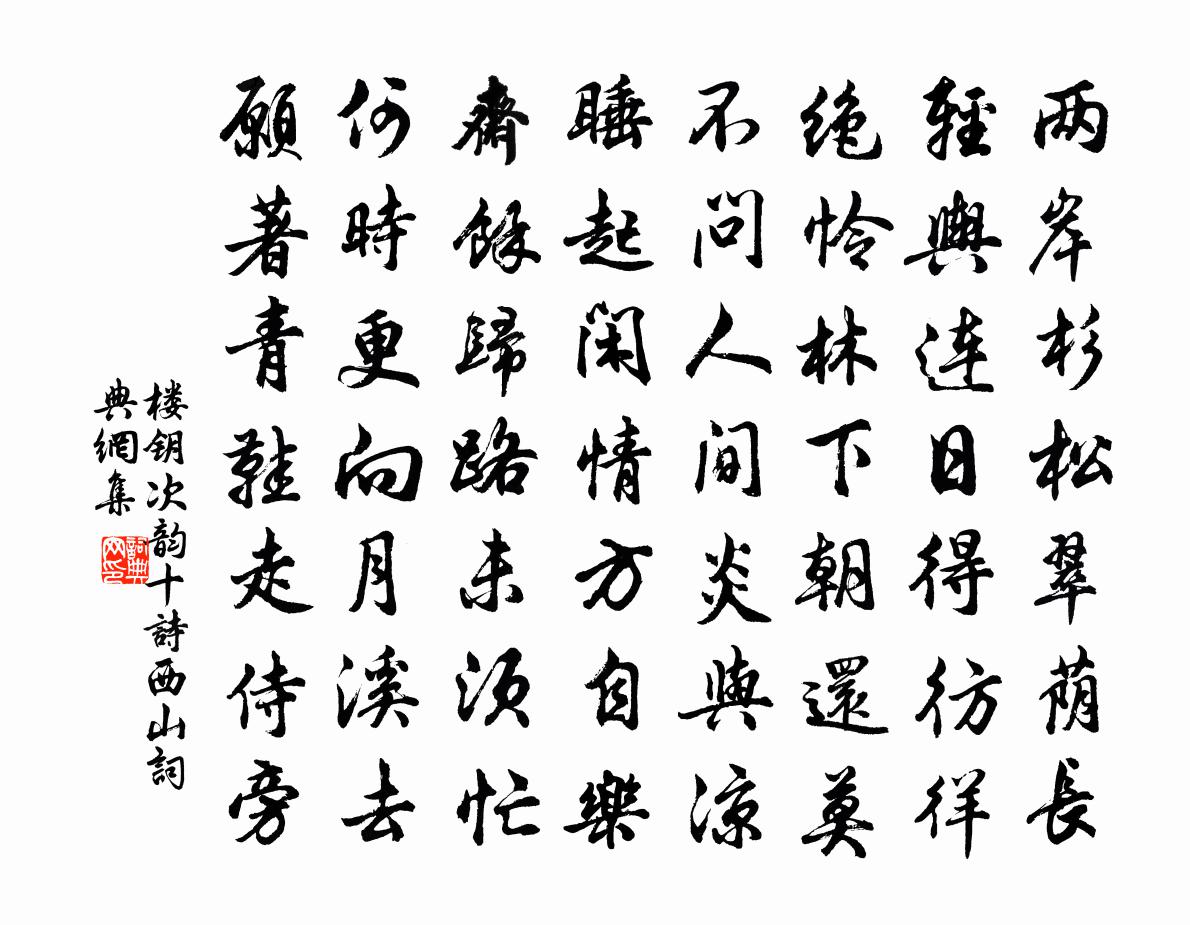 两岸杉松翠荫長
輕輿连日得彷徉
绝怜林下朝還莫
不问人间炎與凉
睡起闲情方自樂
齋餘歸路未须忙
何時更向月溪去
願著青鞋走侍旁
楼钥次韵十詩西山詞
典網集
詞典网印